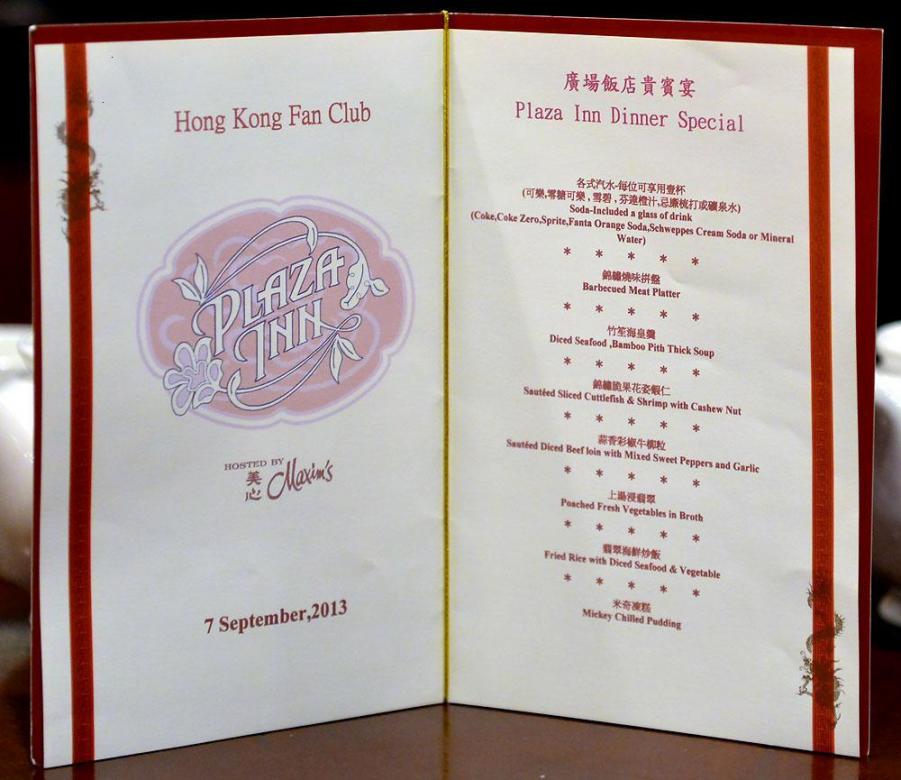 Hong Kong Fan Club
PLAZA
INN
HOSTED BY
美心 Maxim's
7 September,2013
廣場飯店貴賓宴
Plaza Inn Dinner Special
各式汽水-每位可享用壹杯
(可樂,零糖可樂,雪碧,芬達橙汁,忌廉梳打或礦泉水)
Soda-Included a glass of drink
(Coke,Coke Zero,Sprite,Fanta Orange Soda,Schweppes Cream Soda or Mineral
Water)
* * * * *
錦繡燒味拼盤
Barbecued Meat Platter
* * * * *
竹笙海皇羹
Diced Seafood ,Bamboo Pith Thick Soup
* * * * *
錦繡脆果花姿蝦仁
Sautéed Sliced Cuttlefish & Shrimp with Cashew Nut
* * * * *
蒜香彩椒牛柳粒
Sautéed Diced Beef loin with Mixed Sweet Peppers and Garlic
* * * * *
上湯浸翡翠
Poached Fresh Vegetables in Broth
* * * * *
翡翠海鮮炒飯
Fried Rice with Diced Seafood & Vegetable
* * * * *
米奇凍糕
Mickey Chilled Pudding